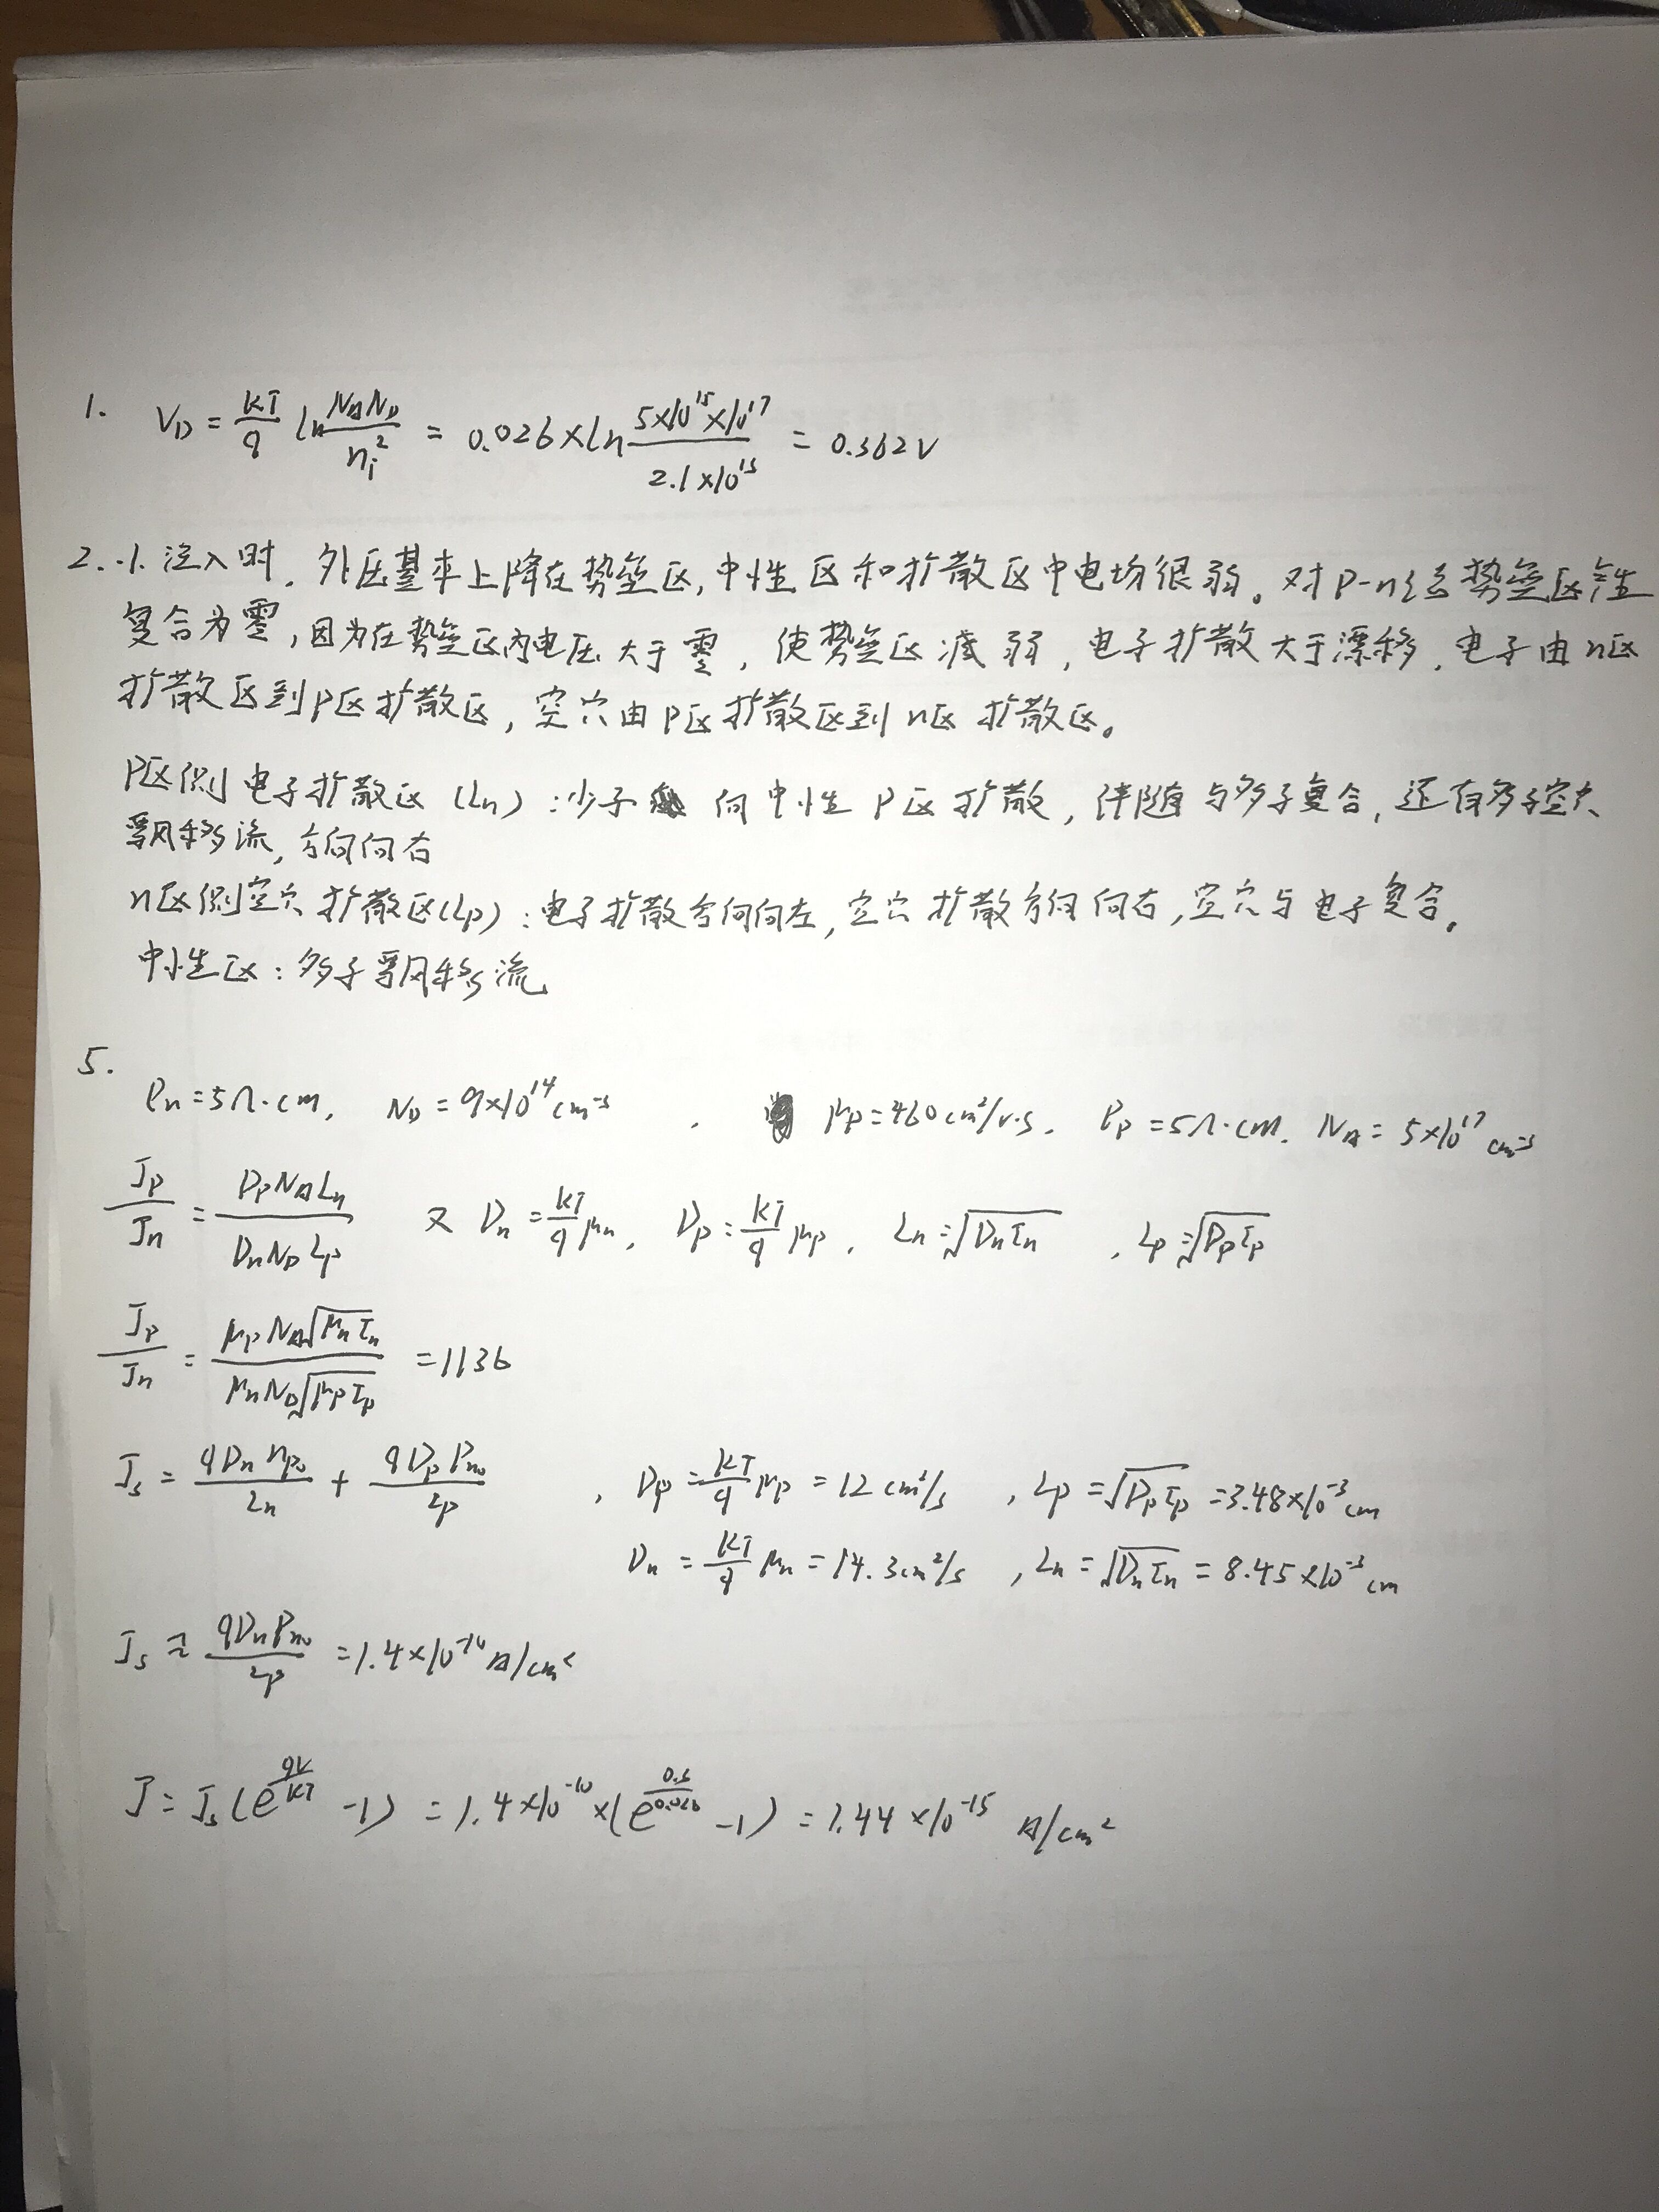 1. V_D = kT/q ln N_A N_D / n_i² = 0.026×ln 5×10¹⁵×10¹⁷ / 2.1×10¹³ = 0.362V
2. 小注入时,外压基本上降在势垒区,中性区和扩散区中电场很弱。对P-n结势垒区产生
复合为零,因为在势垒区内电压大于零,使势垒区减弱,电子扩散大于漂移,电子由n区
扩散区到P区扩散区,空穴由P区扩散区到n区扩散区。
P区侧电子扩散区(Ln):少子向中性P区扩散,伴随与多子复合,还有多子空穴
飘移流,方向向右
n区侧空穴扩散区(Lp):电子扩散方向向左,空穴扩散方向向右,空穴与电子复合。
中性区:多子飘移流
5.
ρn=5Ω·cm, N_D=9×10¹⁴cm⁻³, μp=460cm²/v·s, ρp=5Ω·cm. N_A=5×10¹⁷cm⁻³
Jp/Jn = Dp N_A Ln / Dn N_D Lp 又 Dn=kT/q μn, Dp=kT/q μp, Ln=√DnTn, Lp=√DpTp
Jp/Jn = μp N_A √μnTn / μn N_D √μpTp =1136
Js = qDn np₀/Ln + qDp Pn₀/Lp, Dp=kT/q μp=12cm²/s, Lp=√DpTp=3.48×10⁻³cm
Dn=kT/q μn=14.3cm²/s, Ln=√DnTn=8.45×10⁻³cm
Js≈ qDn Pn₀/Lp =1.4×10⁻¹⁰A/cm²
J=Js(e^{qV/kT}-1)=1.4×10⁻¹⁰×(e^{0.3/0.026}-1)=1.44×10⁻¹⁵ A/cm²